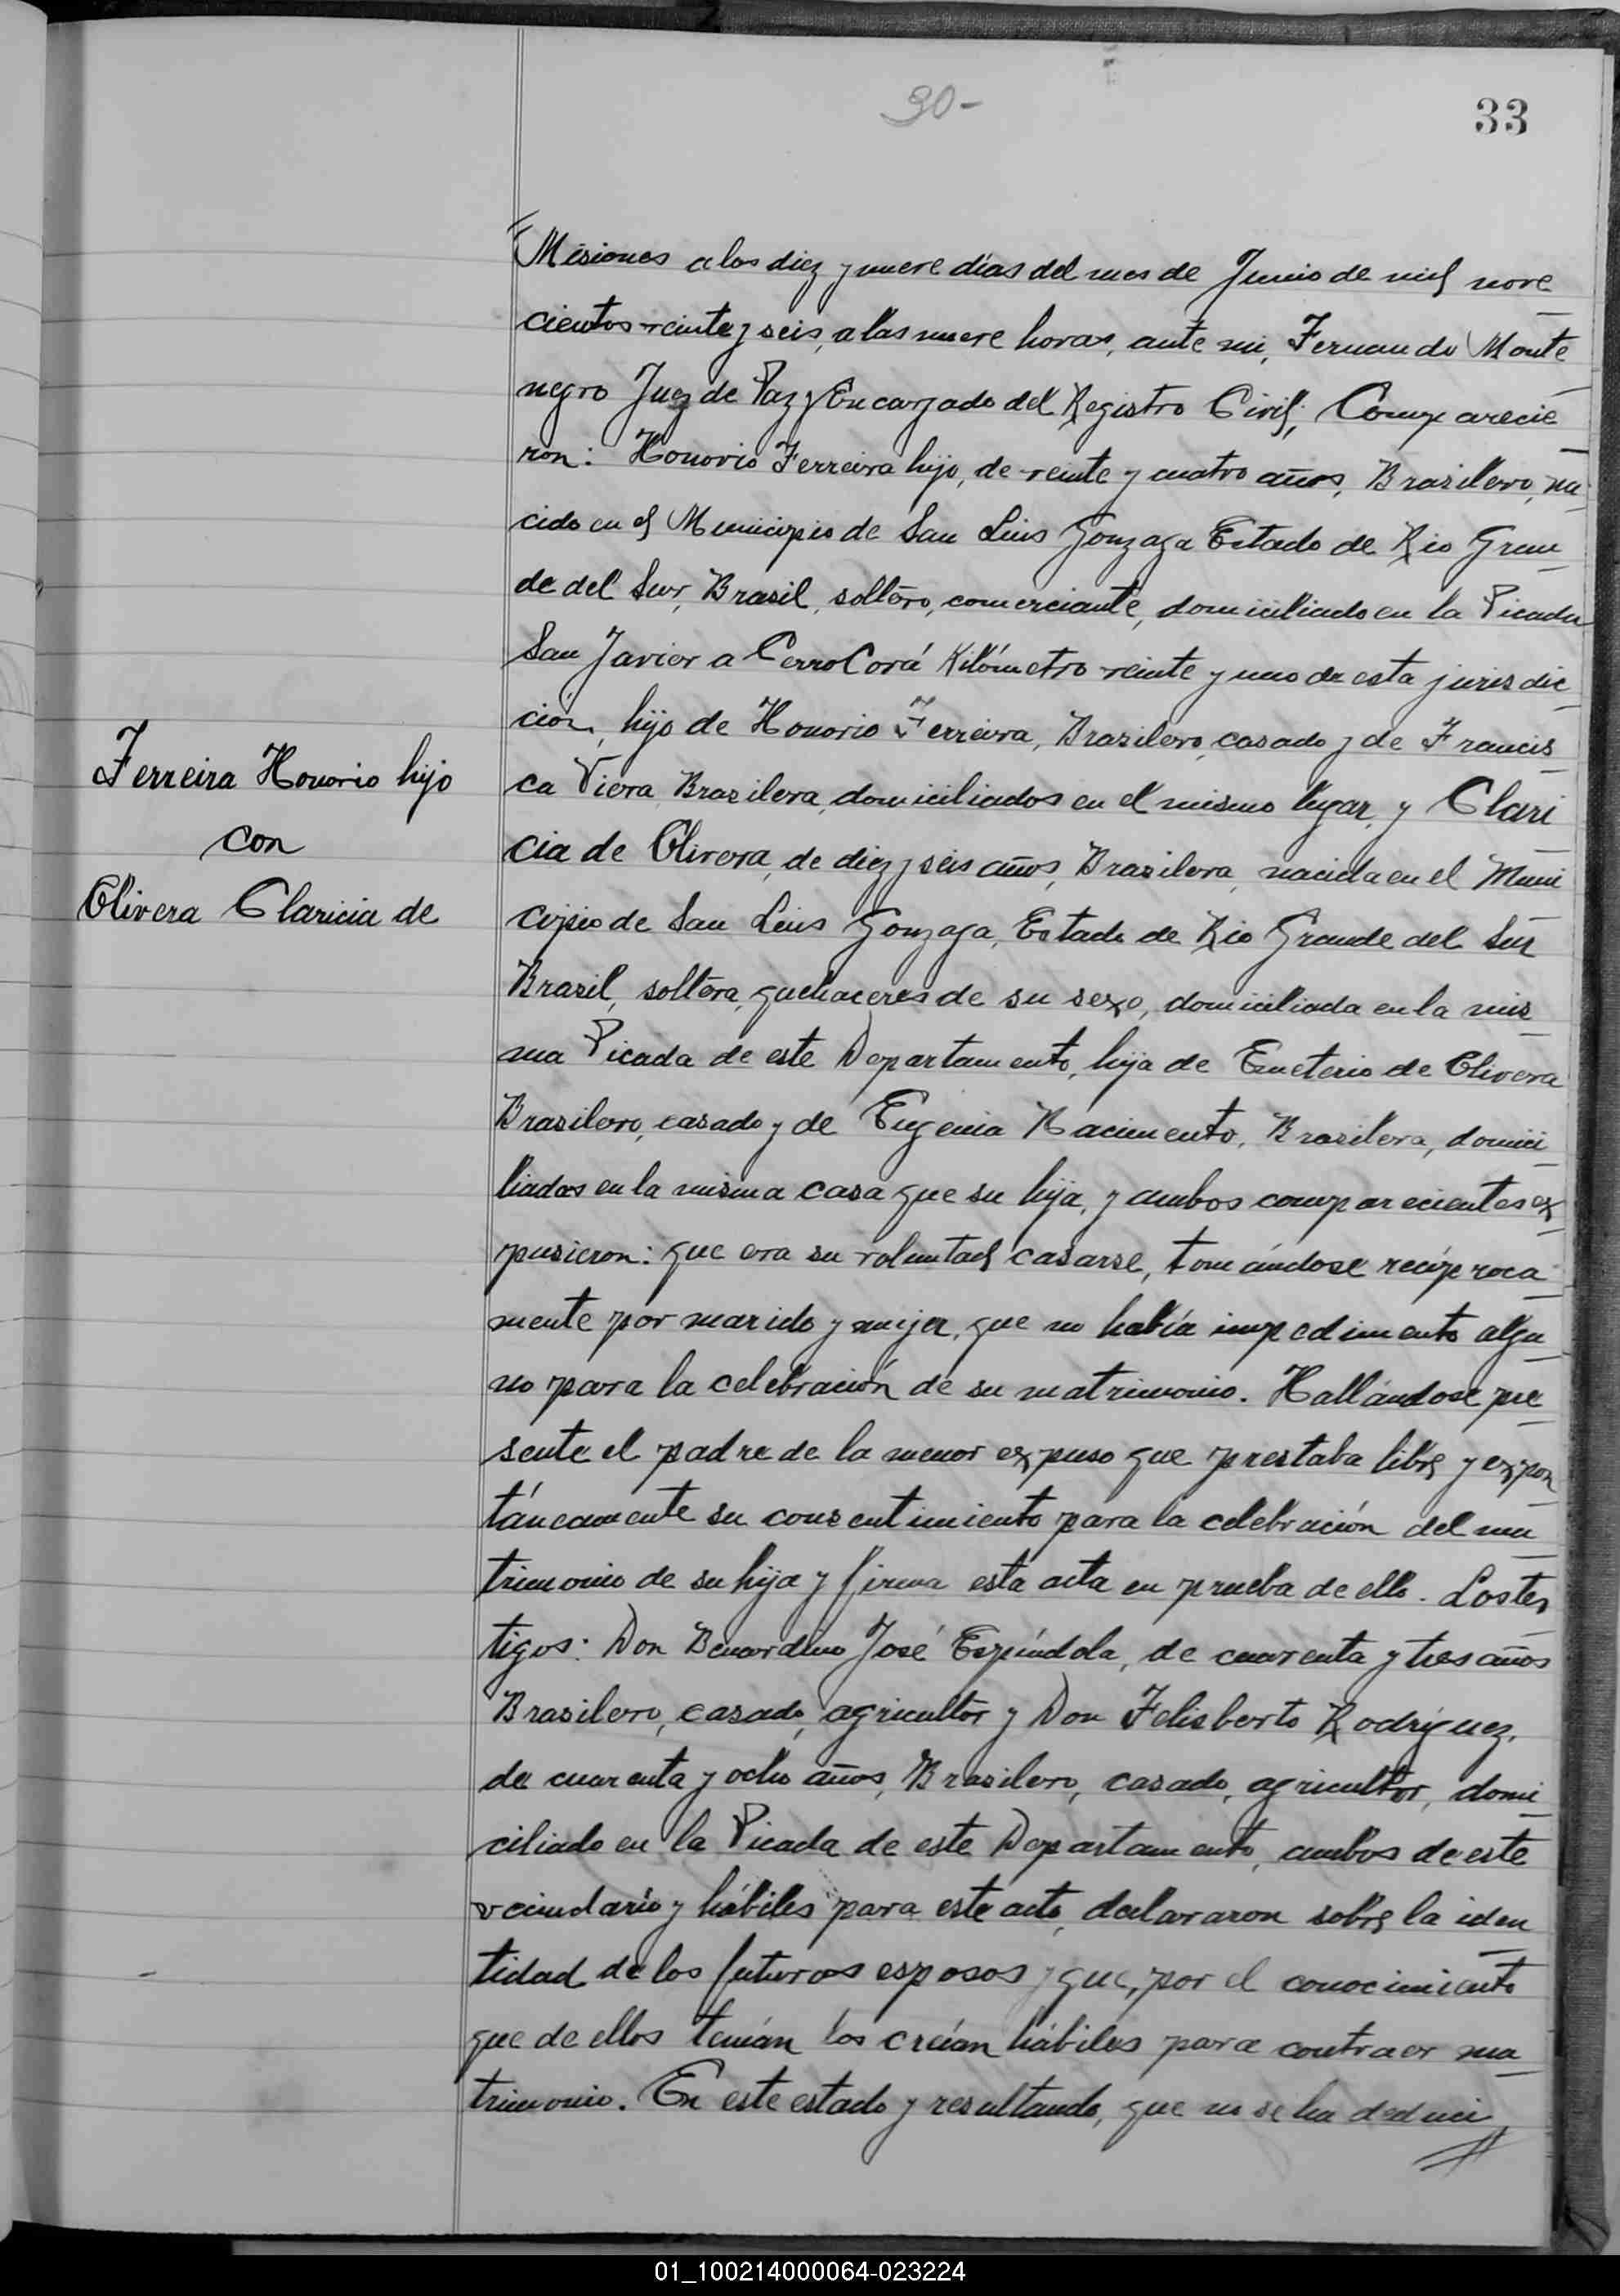 30-
33
Misiones a los diez y nueve días del mes de Junio de mil nove
cientos veinte y seis, a las nueve horas, ante mi, Fernando Monte
negro Juez de Paz y Encargado del Registro Civil; Comparecie
ron: Honorio Ferreira hijo, de veinte y cuatro años, Brasilero, na
cido en el Municipio de San Luis Gonzaga Estado de Rio Gran
de del Sur, Brasil, soltero, comerciante, domiciliado en la Picada
San Javier a Cerro Corá Kilómetro veinte y uno de esta jurisdic
ción, hijo de Honorio Ferreira, Brasilero, casado y de Francis
Ferreira Honorio hijo
con
Olivera Claricia de
ca Viera, Brasilera, domiciliados en el mismo lugar, y Clari
cia de Olivera, de diez y seis años, Brasilera, nacida en el Muni
cipio de San Luis Gonzaga, Estado de Rio Grande del Sur
Brasil, soltera, quehaceres de su sexo, domiciliada en la mis
ma Picada de este Departamento, hija de Emeterio de Olivera
Brasilero, casado y de Eugenia Nacimento, Brasilera, domici
liados en la misma casa que su hija, y ambos comparecientes ex
pusieron: que era su voluntad casarse, tomándose recíproca
mente por marido y mujer, que no había impedimento algu
no para la celebración de su matrimonio. Hallándose pre
sente el padre de la menor expuso que prestaba libre y expon
táneamente su consentimiento para la celebración del ma
trimonio de su hija y firma esta acta en prueba de ello. Los tes
tigos: Don Benardino José Espíndola, de cuarenta y tres años
Brasilero, casado, agricultor y Don Felisberto Rodríguez,
de cuarenta y ocho años, Brasilero, casado, agricultor, domi
ciliado en la Picada de este Departamento, ambos de este
vecindario y hábiles para este acto, declararon sobre la iden
tidad de los futuros esposos y que, por el conocimiento
que de ellos tenían los creían hábiles para contraer ma
trimonio. En este estado y resultando, que no se ha deduci
01_100214000064-023224